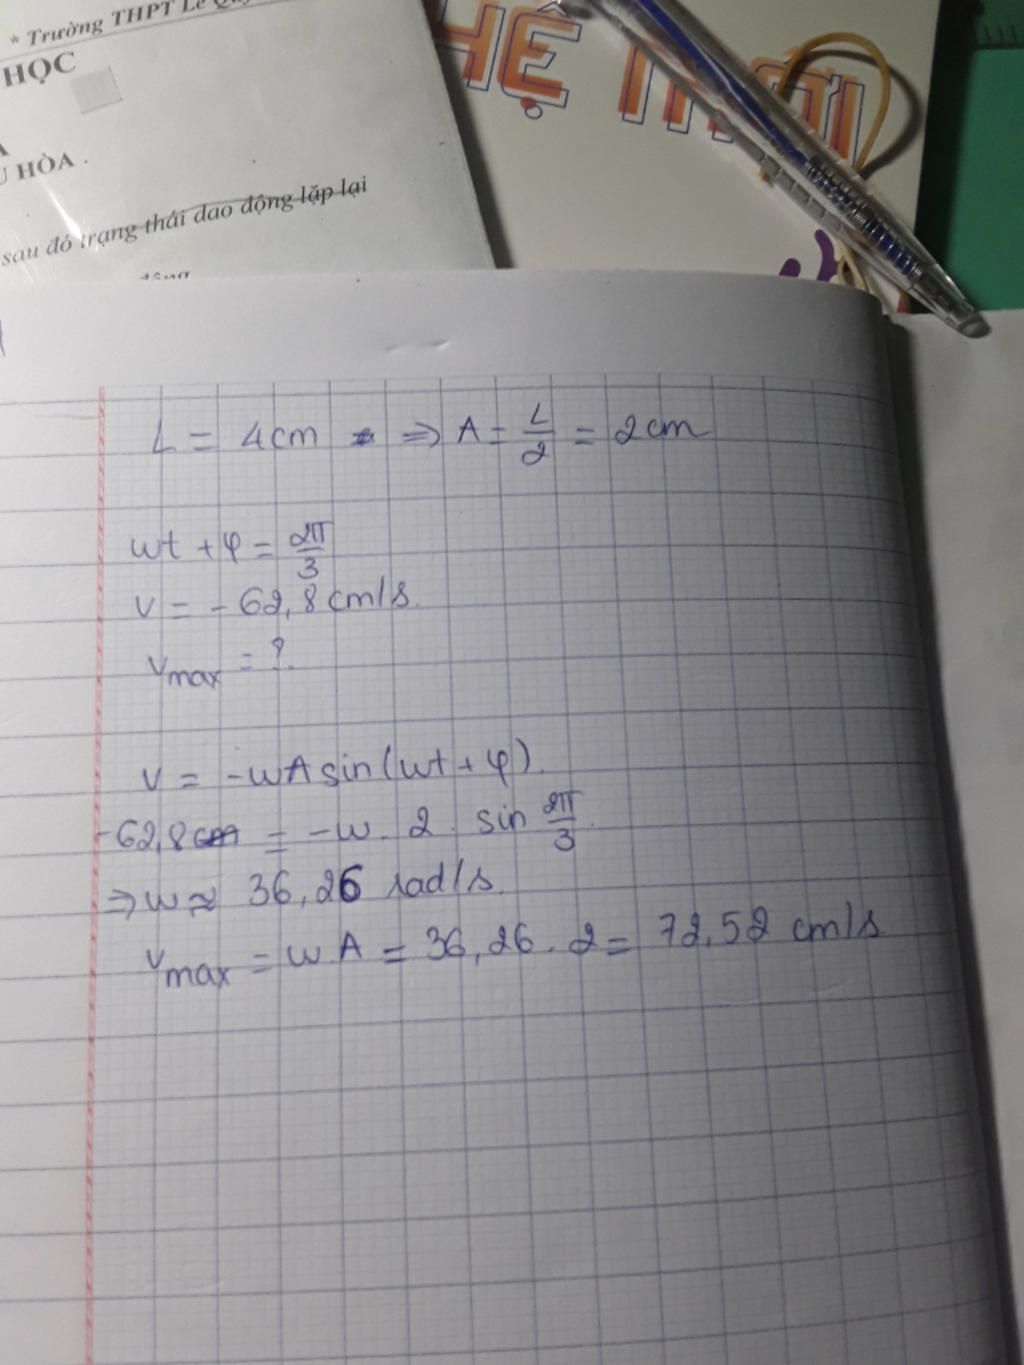 * Trường THPT Lê Quý
HỌC
A
U HÒA.
sau đó trạng thái dao động lặp lại
động
HỆ THỜI
L = 4cm ⇒ A = L/2 = 2cm
wt + φ = 2π/3
v = - 62,8 cm/s.
vmax = ?.
v = -wA sin(wt + φ).
-62,8 = -w. 2. sin 2π/3.
⇒ w ≈ 36,26 rad/s.
vmax = w.A = 36,26 . 2 = 72,52 cm/s